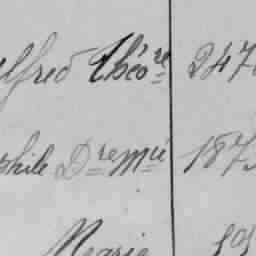 lfred Théo.re 247
phile Dre Mie 187
Marie 19